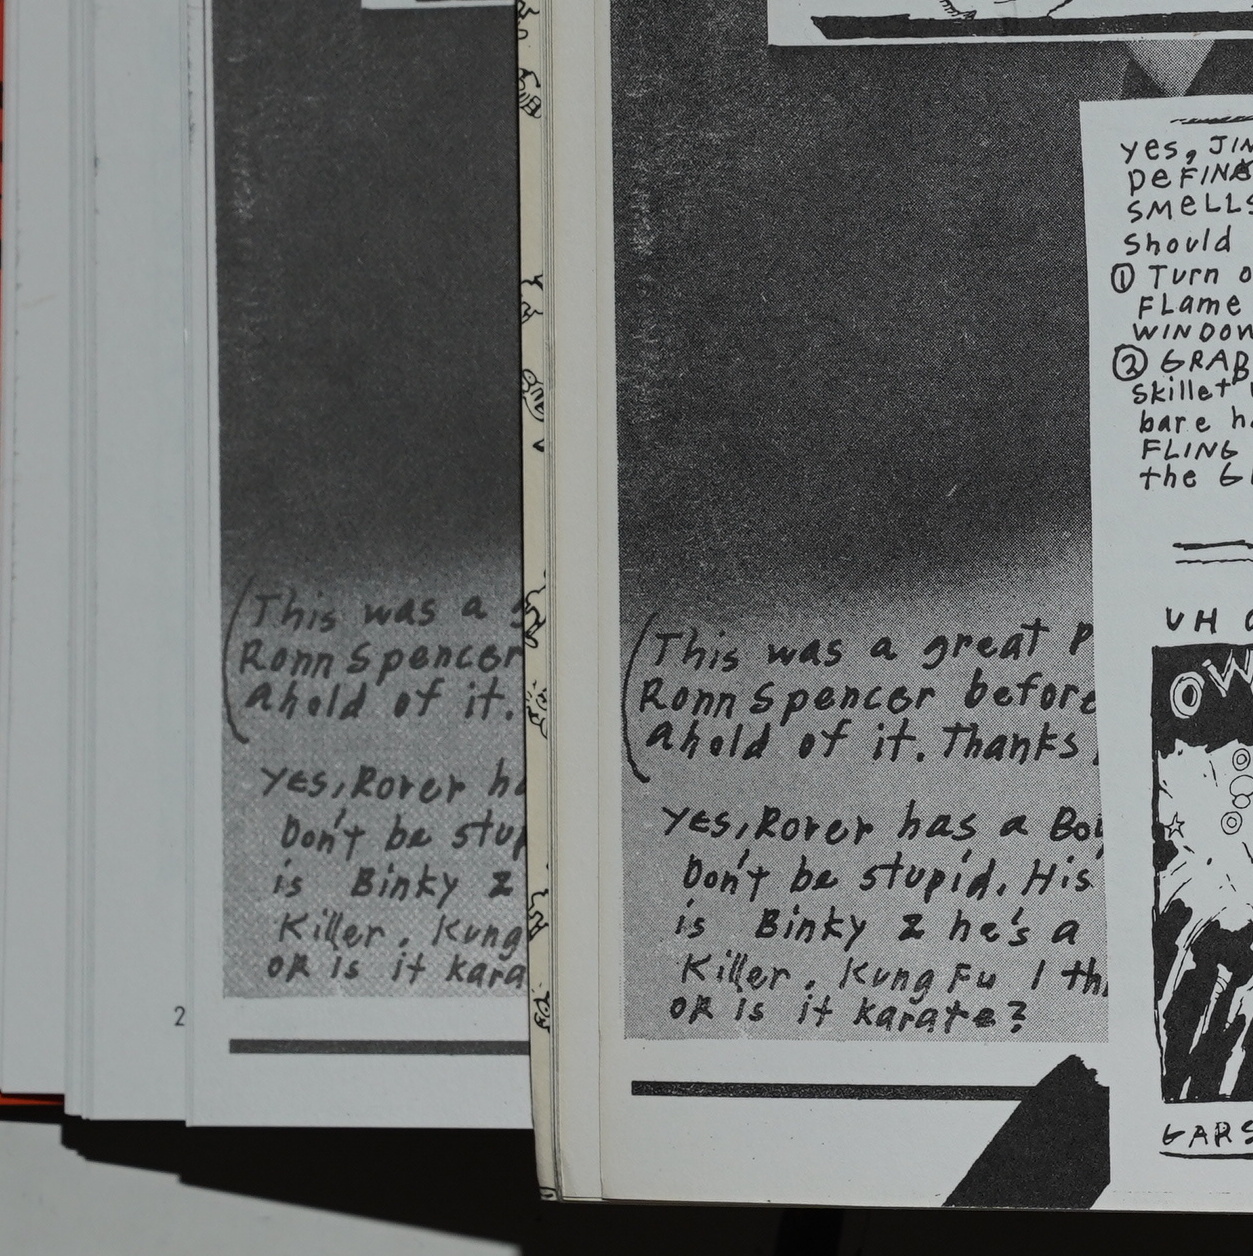 (This was a
Ronn Spencer
ahold of it.
Yes, Rover
Don't be
is Binky z
Killer. Kung
OR is it
2
(This was a great
Ronn Spencer before
ahold of it. Thanks
Yes, Rover has a
Don't be stupid. His
is Binky z he's a
Killer. Kung Fu I
OR is it karate?
yes,
SMELLS
Should
① Turn
FLame
② GRAB
Skillet
bare
FLING
the
VH